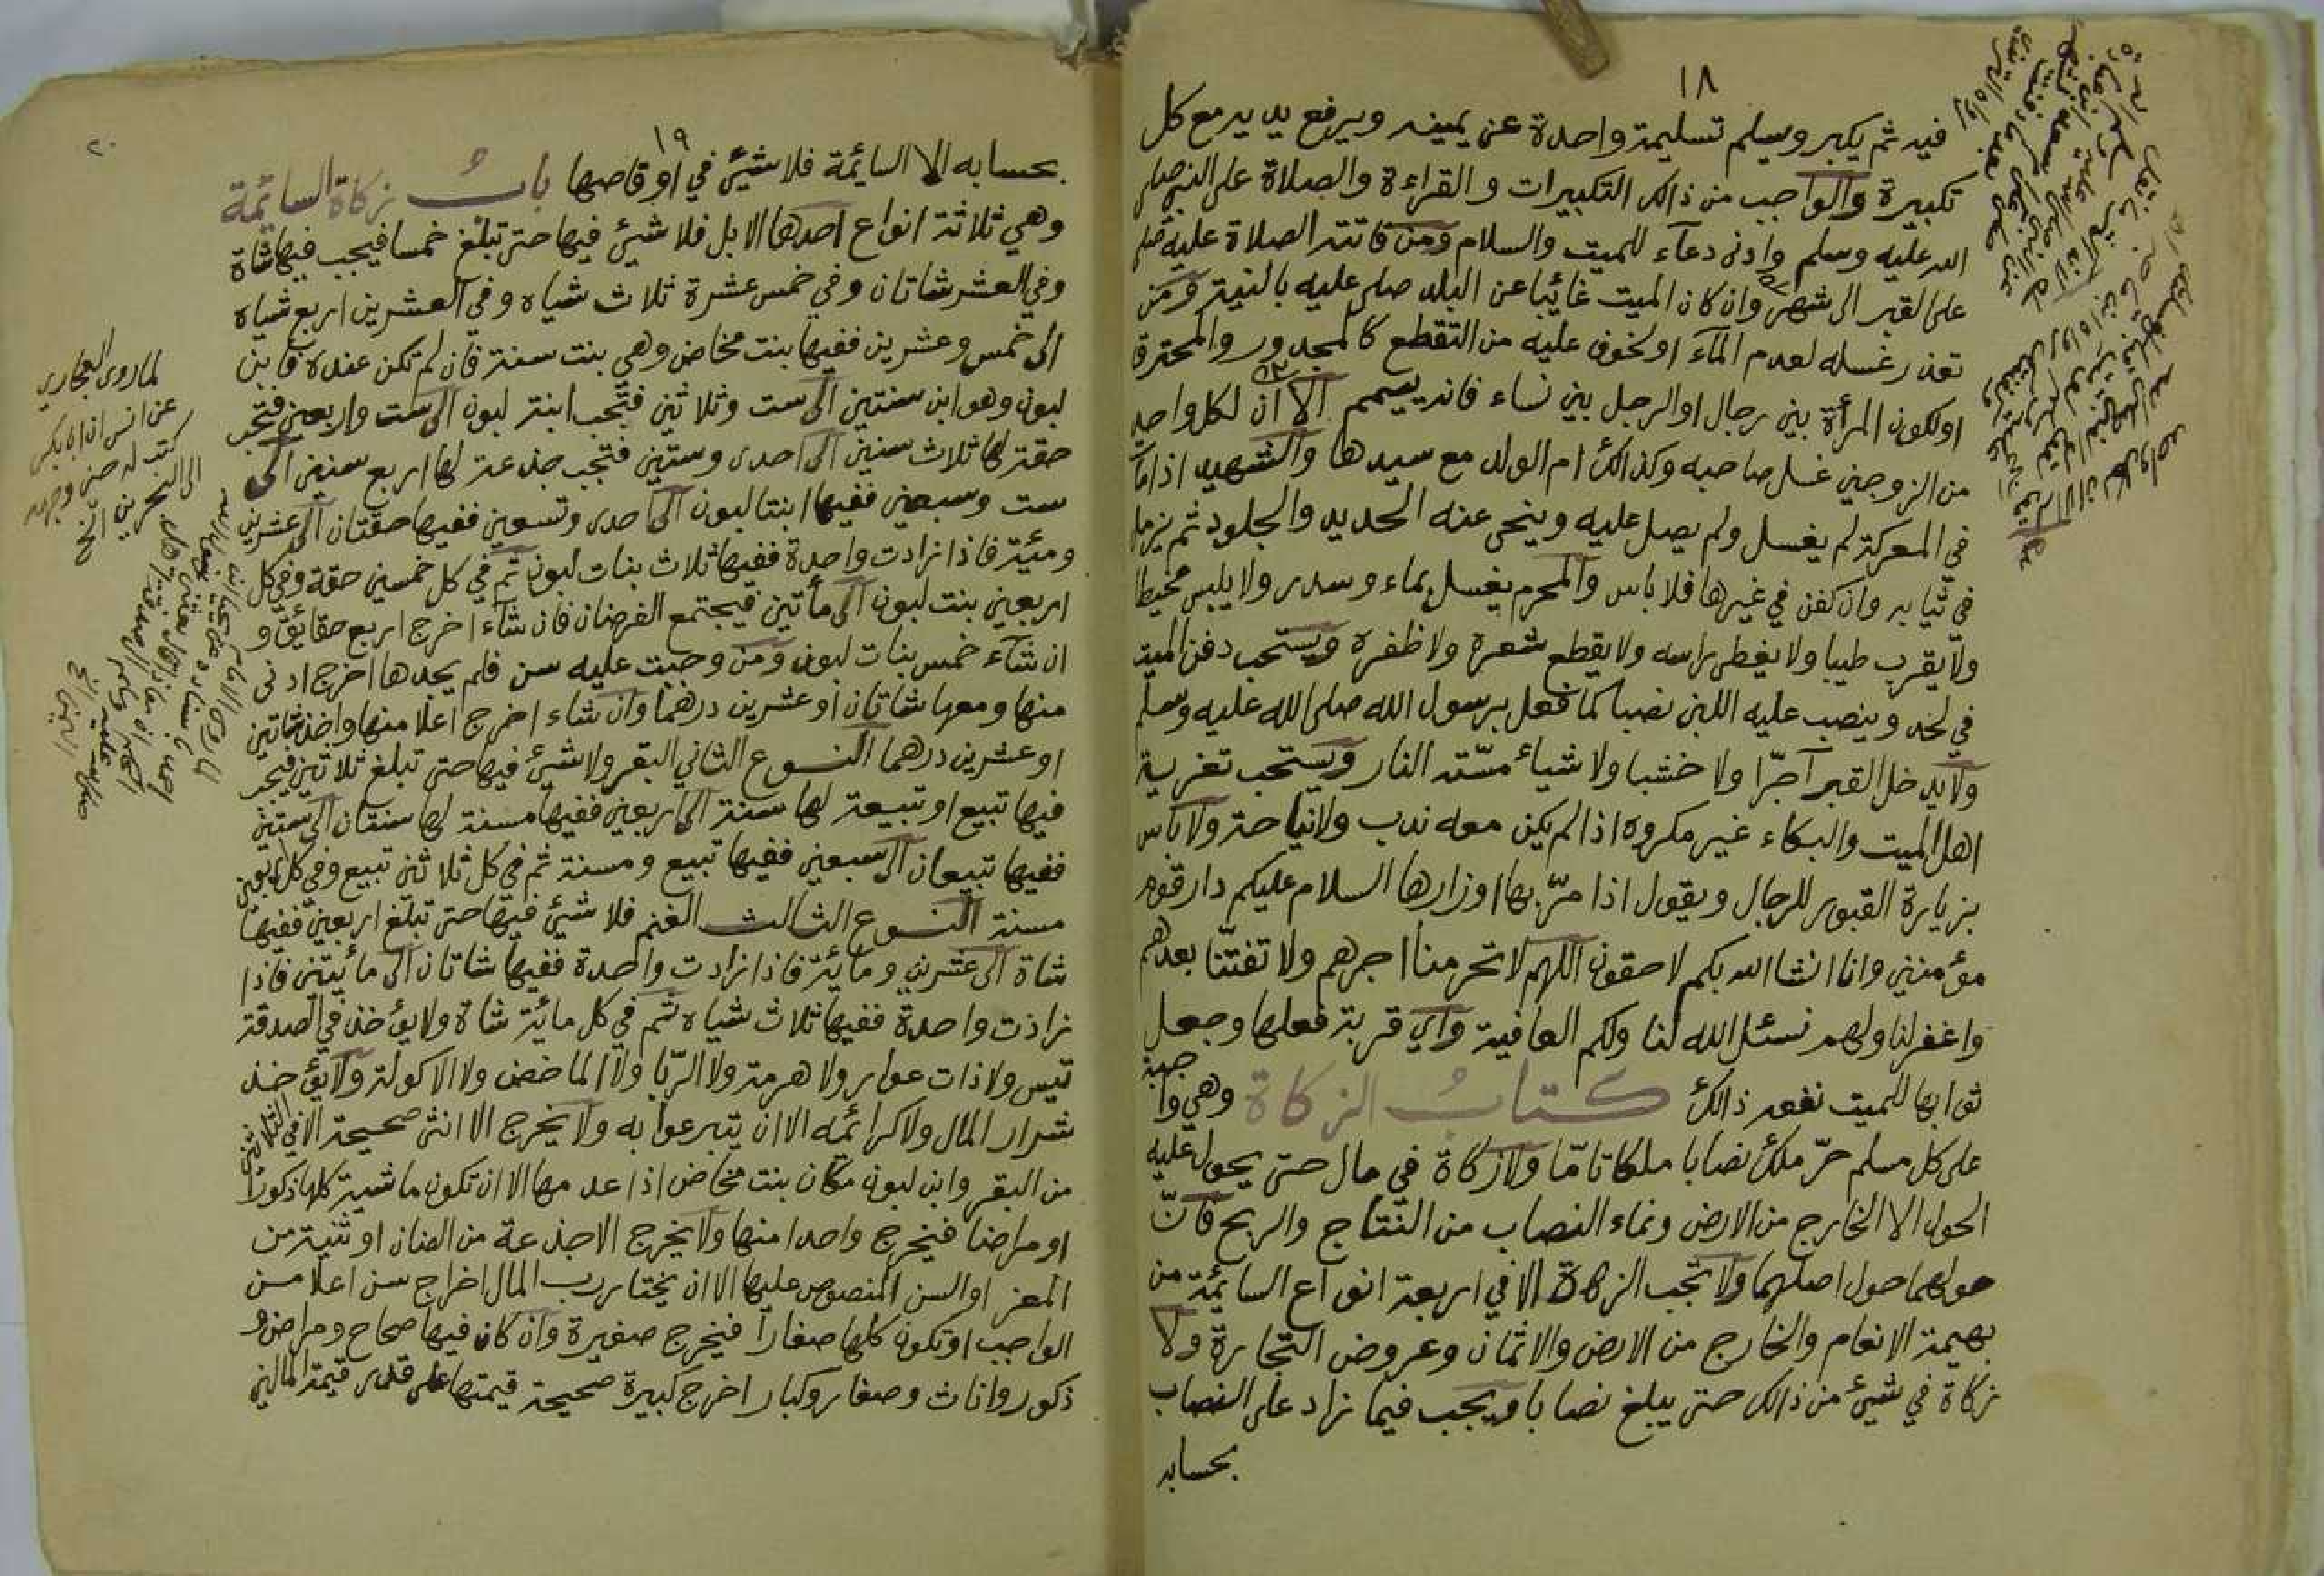 ١٨
فيه ثم يكبر ويسلم تسليمة واحدة عن يمينه ويرفع يديه مع كل
تكبيرة والواجب من ذالك التكبيرات والقراءة والصلاة على النبي صلى
الله عليه وسلم وادنى دعآء للميت والسلام ومن فاتته الصلاة عليه صلى
على القبر الى شهر وان كان الميت غائبا عن البلد صلى عليه بالنية ومن
تعذر غسله لعدم المآء او لخوف عليه من التقطع كالمجدور والمحترق
او لكون المرأة بين رجال او الرجل بين نساء فانه ييمم الا ان لكل واحد
من الزوجين غسل صاحبه وكذالك ام الولد مع سيدها والشهيد اذا مات
في المعركة لم يغسل ولم يصل عليه وينحى عنه الحديد والجلود ثم يزمل
في ثيابه وان كفن في غيرها فلا باس والمحرم يغسل بماء وسدر ولا يلبس مخيطا
ولا يقرب طيبا ولا يغطى راسه ولا يقطع شعره ولا ظفره ويستحب دفن الميت
في لحد وينصب عليه اللبن نصبا كما فعل برسول الله صلى الله عليه وسلم
ولا يدخل القبر آجرّا ولا خشبا ولا شياء مسّته النار ويستحب تعزية
اهل الميت والبكاء غير مكروه اذا لم يكن معه ندب ولا نياحة ولا باس
بزيارة القبور للرجال ويقول اذا مرّ بها او زارها السلام عليكم دار قوم
مؤمنين وانا انشا الله بكم لاحقون اللهم لا تحرمنا اجرهم ولا تفتنّا بعدهم
واغفر لنا ولهم نسئل الله لنا ولكم العافية واي قربة فعلها وجعل
ثوابها للميت نفعه ذالك كتاب الزكاة وهي واجبة
على كل مسلم حرّ ملك نصابا ملكا تامّا ولا زكاة في مال حتى يحول عليه
الحول الا الخارج من الارض ونماء النصاب من النتاج والربح فانّ
حولهما حول اصلهما ولا تجب الزكاة الا في اربعة انواع السائمة من
بهيمة الانعام والخارج من الارض والاثمان وعروض التجارة ولا
زكاة في شيئ من ذالك حتى يبلغ نصابا ويجب فيما زاد على النصاب
بحسابه
١٩
٢٠
بحسابه الا السايئمة فلا شيئ في اوقاصها باب زكاة السايئمة
وهي ثلاثة انواع احدها الابل فلا شيئ فيها حتى تبلغ خمسا فيجب فيها شاة
وفي العشر شاتان وفي خمس عشرة ثلاث شياه وفي العشرين اربع شياه
الى خمس وعشرين ففيها بنت مخاض وهي بنت سنة فان لم تكن عنده فابن
لبون وهو ابن سنتين الى ست وثلاثين فتجب ابنة لبون الى ست واربعين فتجب
حقة لها ثلاث سنين الى احدى وستين فتجب جذعة لها اربع سنين الى
ست وسبعين ففيها ابنتا لبون الى احدى وتسعين ففيها حقتان الى عشرين
ومئة فاذا زادت واحدة ففيها ثلاث بنات لبون ثم في كل خمسين حقة وفي كل
اربعين بنت لبون الى مأتين فيجتمع الفرضان فان شاء اخرج اربع حقائق و
ان شآء خمس بنات لبون ومن وجبت عليه سن فلم يجدها اخرج ادنى
منها ومعها شاتان او عشرين درهما وان شاء اخرج اعلا منها واخذ شاتين
او عشرين درهما النوع الثاني البقر ولا شيئ فيها حتى تبلغ ثلاثين فيجب
فيها تبيع او تبيعة لها سنة الى اربعين ففيها مسنة لها سنتان الى ستين
ففيها تبيعان الى سبعين ففيها تبيع ومسنة ثم في كل ثلاثين تبيع وفي كل اربعين
مسنة النوع الثالث الغنم فلا شيئ فيها حتى تبلغ اربعين ففيها
شاة الى عشرين ومائة فاذا زادت واحدة ففيها شاتان الى مأيتين فاذا
زادت واحدة ففيها ثلاث شياه ثم في كل مائة شاة ولا يؤخذ في الصدقة
تيس ولا ذات عوار ولا هرمة ولا الربّا ولا الماخض ولا الاكولة ولا يؤخذ
شرار المال ولا كرائمه الا ان يتبرعوا به ولا يخرج الا انثى صحيحة الا في الثلاثين
من البقر وابن لبون مكان بنت مخاض اذا عدمها الا ان تكون ماشية كلها ذكورا
او مراضا فيخرج واحدا منها ولا يخرج الا جذعة من الضان او ثنية من
المعز او السن المنصوص عليها الا ان يختار رب المال اخراج سن اعلا من
الواجب او تكون كلها صغارا فيخرج صغيرة وان كان فيها صحاح ومراض و
ذكور واناث وصغار وكبار اخرج كبيرة صحيحة قيمتها على قدر قيمة المالين
لما روى البخاري
عن انس ان ابا بكر
كتب له حين وجهه
الى البحرين الخ